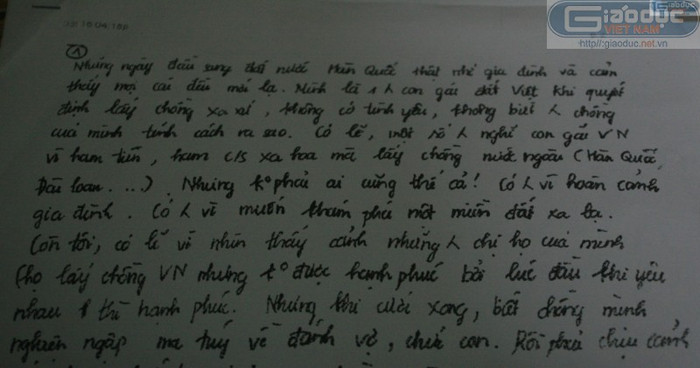 Giáo dục
VIỆT NAM
http://giaoduc.net.vn
①
Những ngày đầu sang đất nước Hàn Quốc thật nhớ gia đình và cảm
thấy mọi cái đều mới lạ. Mình là 1 λ con gái đất Việt khi quyết
định lấy chồng xa xứ, không có tình yêu, không biết λ chồng
của mình tính cách ra sao. Có lẽ, một số λ nghĩ con gái VN
vì ham tiền, ham c/s xa hoa mà lấy chồng nước ngoài (Hàn Quốc,
Đài Loan...). Nhưng k° phải ai cũng thế cả! Có λ vì hoàn cảnh
gia đình. Có λ vì muốn khám phá một miền đất xa lạ.
Còn tôi, có lẽ vì nhìn thấy cảnh những λ chị họ của mình
họ lấy chồng VN nhưng k° được hạnh phúc bởi lúc đầu khi yêu
nhau thì hạnh phúc. Nhưng khi cưới xong, biết chồng mình
nghiện ngập ma túy về đánh vợ, chửi con. Rồi phải chịu cảnh